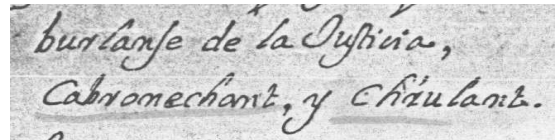 burlanse de la Justicia,
Cabronechant, y Chirulant.